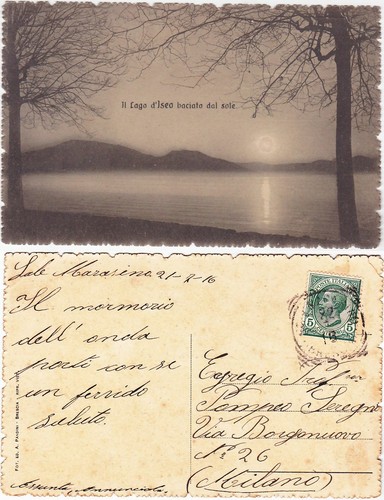 Il Lago d'Iseo baciato dal sole.
Sale Marasino 21-2-16
Il mormorio
dell'onda
porti con se
un fervido
saluto.
Assunta Annunciata
POSTE ITALIANE
5 5
Egregio
Pompeo Seregni
Via Borgonuovo
N° 26
(Milano)